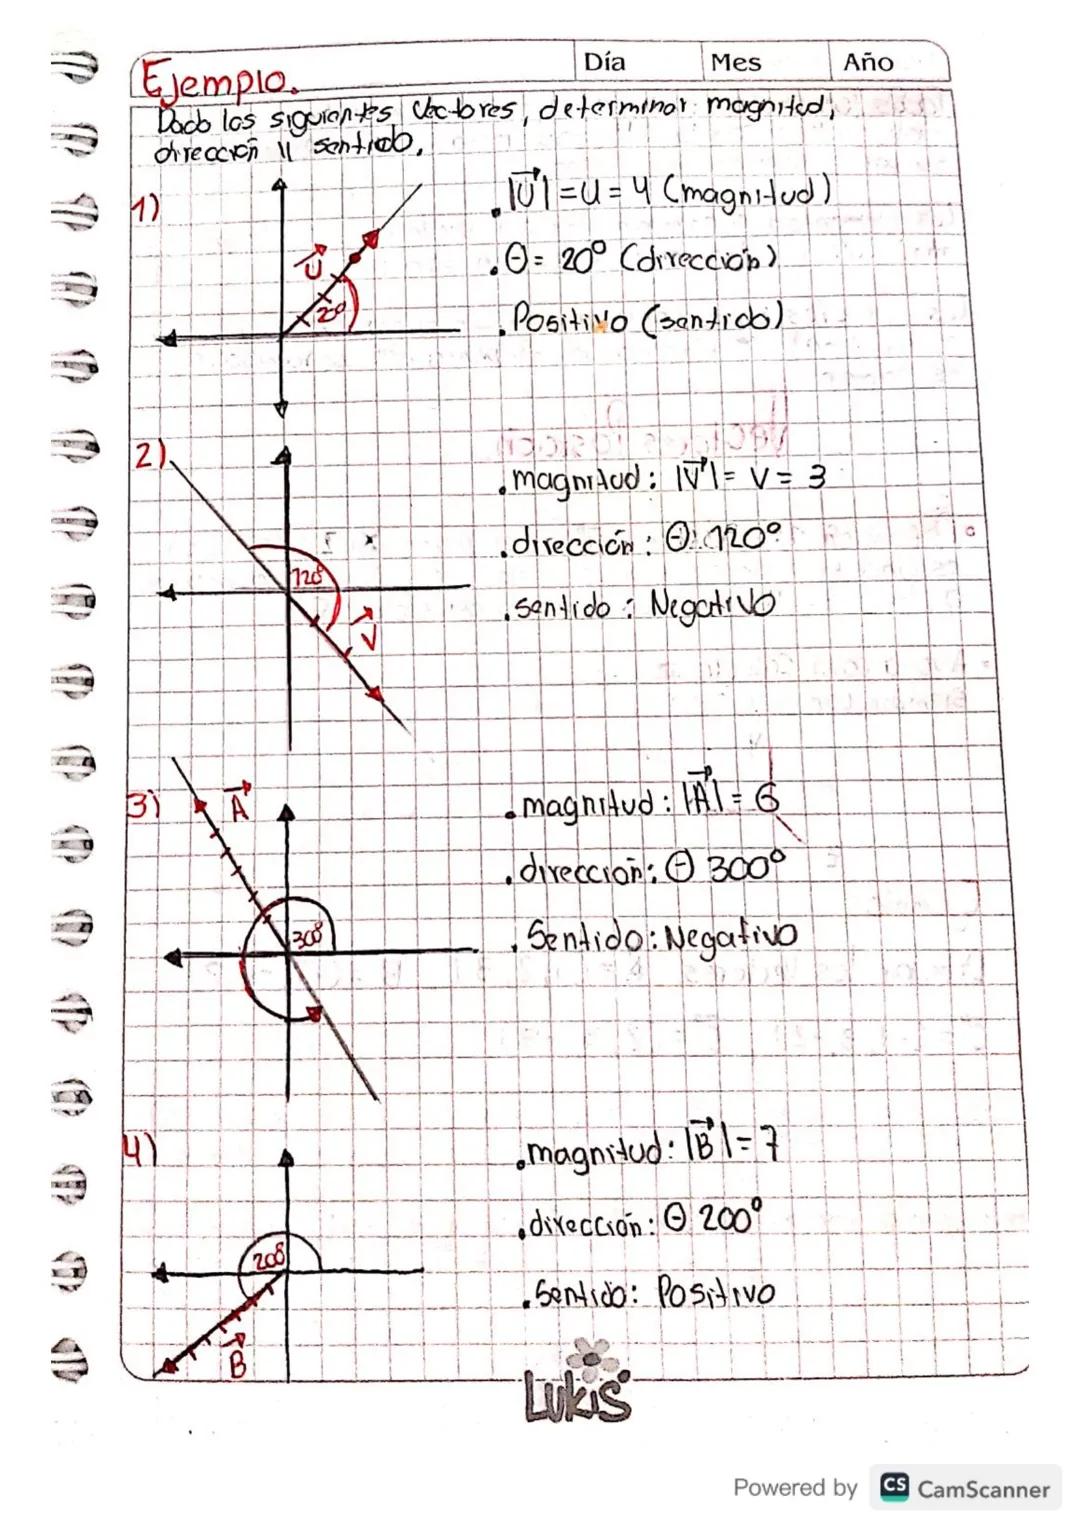 Día Mes Año
Ejemplo.
Dado los siguientes Vectores, determinar magnitud,
dirección y sentido.
1)
|U| = U = 4 (magnitud)
U
θ = 20° (dirección)
20
Positivo (sentido)
2)
magnitud: |V| = V = 3
dirección: θ: 120°
120°
sentido: Negativo
V
3)
A
magnitud: |A| = 6
dirección: θ 300°
300°
Sentido: Negativo
4)
magnitud: |B| = 7
dirección: θ 200°
200°
Sentido: Positivo
B
LUKIS
Powered by CS CamScanner